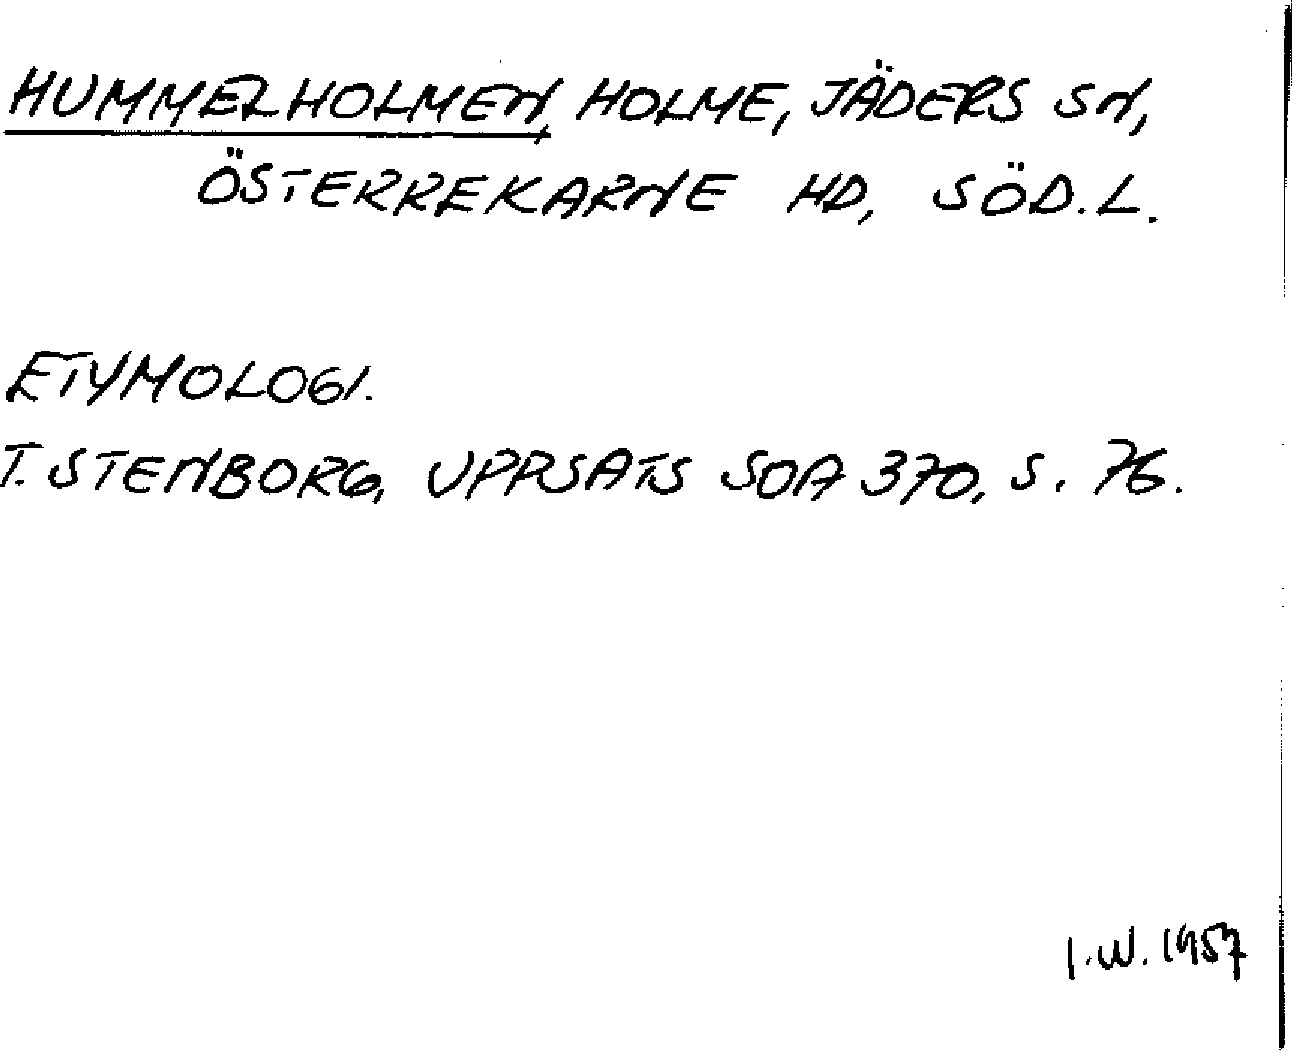 HUMMELHOLMEN, HOLME, JÄDERS SN,
ÖSTERREKARNE HD, SÖD.L.
ETYMOLOGI.
T. STENBORG, UPPSATS SOA 370, S. 76.
I.W. 1957